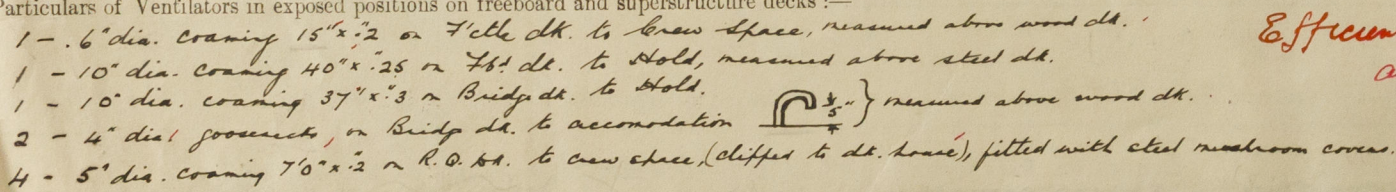 Particulars of Ventilators in exposed positions on freeboard and superstructure decks :—
1 - .6" dia. coaming 15" x .2 on F'cle dk. to Crew Space, measured above wood dk. Efficien
1 - 10" dia. coaming 40" x .25 on Fbd dk. to Hold, measured above steel dk.
1 - 10" dia. coaming 37" x .3 on Bridge dk. to Hold.
2 - 4" dia goosenecks, on Bridge dk. to accomodation 5" } measured above wood dk.
4 - 5" dia. coaming 7'0" x .2 on R.Q. dk. to crew space, (clipped to dk. house), fitted with steel mushroom covers.